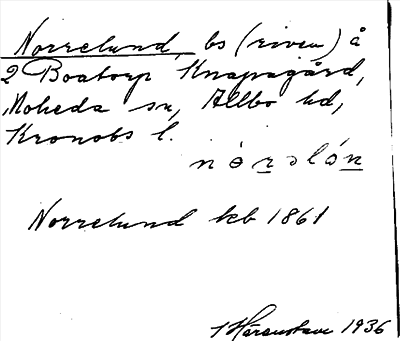 Norrelund, bs (riven) å
2 Boatorp Knapagård,
Moheda sn, Allbo hd,
Kronobs l.
nórslón
Norrelund kb 1861
1936